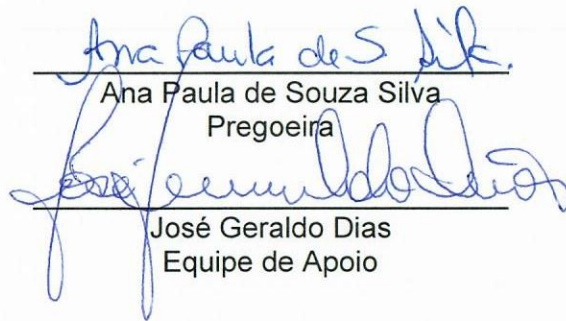 Ana Paula de S. Silva.
Ana Paula de Souza Silva
Pregoeira
José Geraldo Dias
José Geraldo Dias
Equipe de Apoio